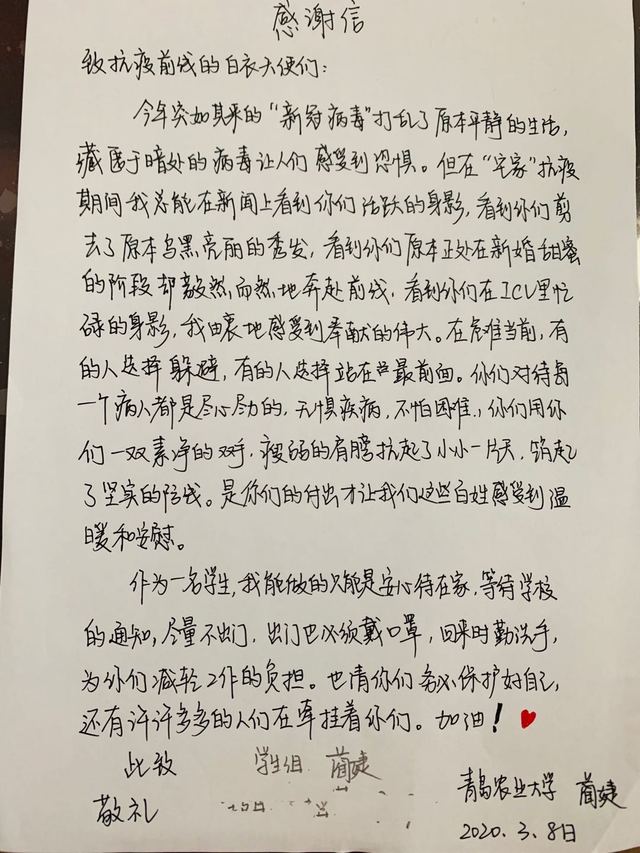 感谢信
致抗疫前线的白衣天使们:
今年突如其来的“新冠病毒”打乱了原本平静的生活,
藏匿于暗处的病毒让人们感受到恐惧。但在“宅家”抗疫
期间我总能在新闻上看到你们活跃的身影,看到你们剪
去了原本乌黑亮丽的秀发,看到你们原本正处在新婚甜蜜
的阶段却毅然而然地奔赴前线,看到你们在ICU里忙
碌的身影,我由衷地感受到奉献的伟大。在危难当前,有
的人选择躲避,有的人选择站在最前面。你们对待每
一个病人都是尽心尽力的,无惧疾病,不怕困难,你们用你
们一双素净的双手,瘦弱的肩膀抗起了小小一片天,筑起
了坚实的防线。是你们的付出才让我们这些百姓感受到温
暖和安慰。
作为一名学生,我能做的只能是安心待在家,等待学校
的通知,尽量不出门,出门也必须戴口罩,回来时勤洗手,
为你们减轻工作的负担。也请你们务必保护好自己,
还有许许多多的人们在牵挂着你们。加油!
此致 学生组 蔺婕
敬礼
青岛农业大学 蔺婕
2020.3.8日